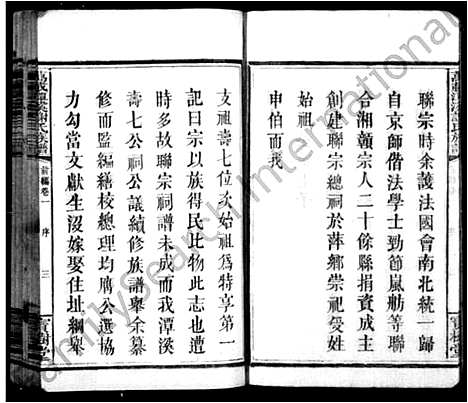 聯宗時余護法國會南北統一歸
自京師偕法學士勁節嵐舫等聯
合湘贛宗人二十餘縣捐資成主
創建聯宗總祠於萍鄉崇祀受姓
始祖
申伯而我
支祖壽七位次始祖爲特享第一
記曰宗以族得民此物此志也遭
時多故聯宗祠譜未成而我潭溪
壽七公祠公議續修族譜舉余纂
修而監編籍校總理均廣公選協
力勾當文獻生沒嫁娶住址綱舉
前編卷一
序
三
寶樹堂
FamilySearch International